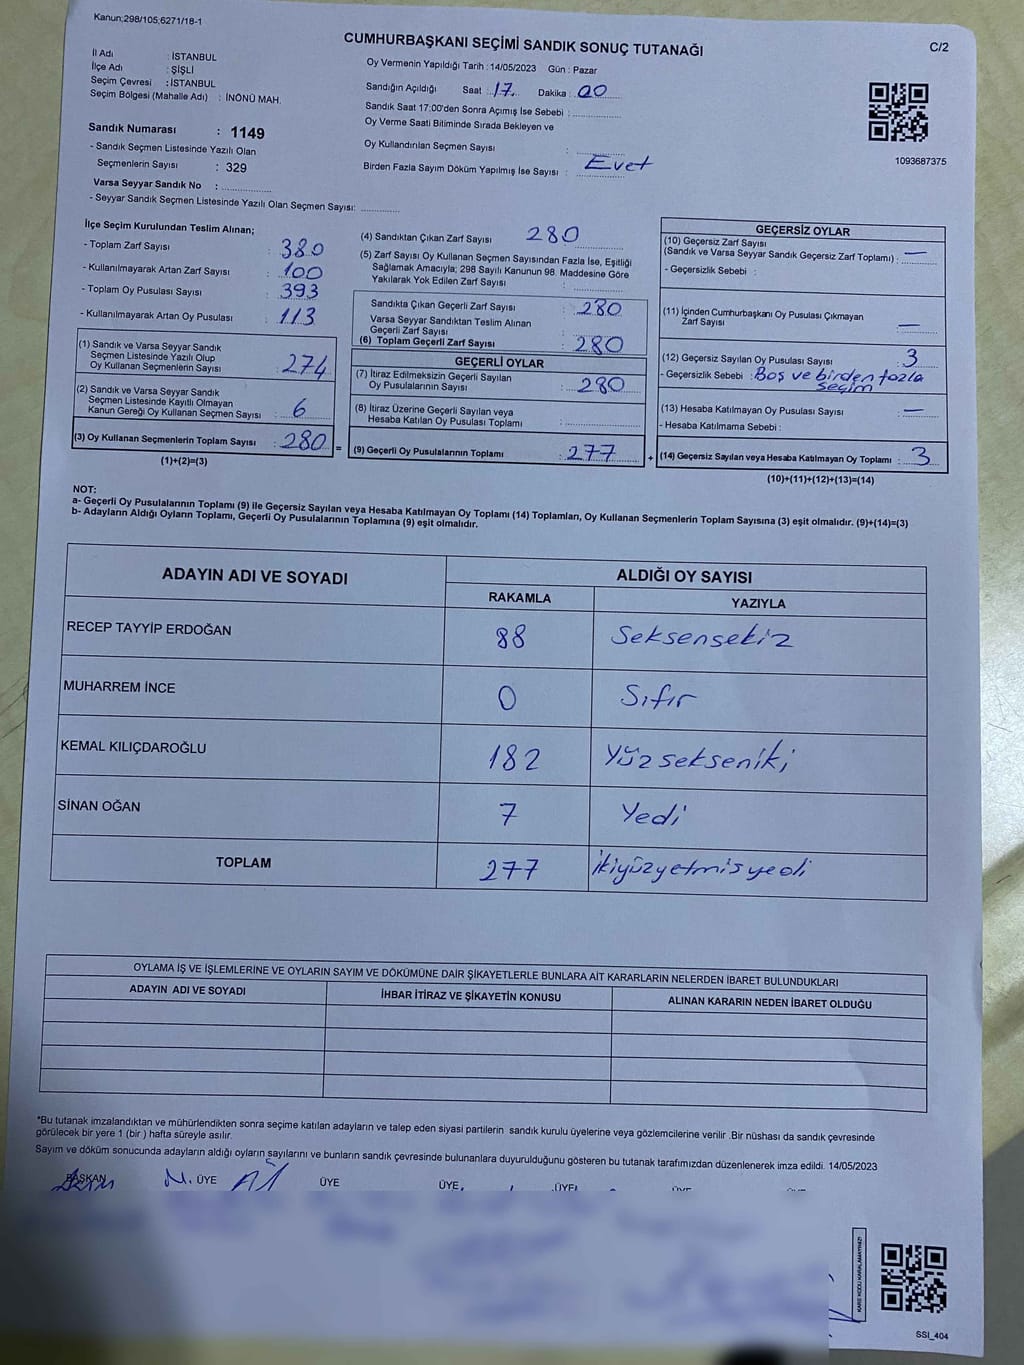 Kanun;298/105;6271/18-1
CUMHURBAŞKANI SEÇİMİ SANDIK SONUÇ TUTANAĞI
C/2
İl Adı : İSTANBUL
İlçe Adı : ŞİŞLİ
Seçim Çevresi : İSTANBUL
Seçim Bölgesi (Mahalle Adı) : İNÖNÜ MAH.
Sandık Numarası : 1149
- Sandık Seçmen Listesinde Yazılı Olan
Seçmenlerin Sayısı : 329
Varsa Seyyar Sandık No :
- Seyyar Sandık Seçmen Listesinde Yazılı Olan Seçmen Sayısı:
Oy Vermenin Yapıldığı Tarih : 14/05/2023 Gün : Pazar
Sandığın Açıldığı Saat : 17 Dakika : 00
Sandık Saat 17:00'den Sonra Açımış İse Sebebi :
Oy Verme Saati Bitiminde Sırada Bekleyen ve
Oy Kullandırılan Seçmen Sayısı :
Birden Fazla Sayım Döküm Yapılmış İse Sayısı : Evet
1093687375
İlçe Seçim Kurulundan Teslim Alınan;
- Toplam Zarf Sayısı : 380
- Kullanılmayarak Artan Zarf Sayısı : 100
- Toplam Oy Pusulası Sayısı : 393
- Kullanılmayarak Artan Oy Pusulası : 113
(1) Sandık ve Varsa Seyyar Sandık
Seçmen Listesinde Yazılı Olup
Oy Kullanan Seçmenlerin Sayısı : 274
(2) Sandık ve Varsa Seyyar Sandık
Seçmen Listesinde Kayıtlı Olmayan
Kanun Gereği Oy Kullanan Seçmen Sayısı : 6
(3) Oy Kullanan Seçmenlerin Toplam Sayısı : 280
(1)+(2)=(3)
=
(4) Sandıktan Çıkan Zarf Sayısı 280
(5) Zarf Sayısı Oy Kullanan Seçmen Sayısından Fazla İse, Eşitliği
Sağlamak Amacıyla; 298 Sayılı Kanunun 98. Maddesine Göre
Yakılarak Yok Edilen Zarf Sayısı :
Sandıkta Çıkan Geçerli Zarf Sayısı : 280
Varsa Seyyar Sandıktan Teslim Alınan
Geçerli Zarf Sayısı :
(6) Toplam Geçerli Zarf Sayısı : 280
GEÇERLİ OYLAR
(7) İtiraz Edilmeksizin Geçerli Sayılan
Oy Pusulalarının Sayısı : 280
(8) İtiraz Üzerine Geçerli Sayılan veya
Hesaba Katılan Oy Pusulası Toplamı :
(9) Geçerli Oy Pusulalarının Toplamı : 277
+
GEÇERSİZ OYLAR
(10) Geçersiz Zarf Sayısı
(Sandık ve Varsa Seyyar Sandık Geçersiz Zarf Toplamı) : —
- Geçersizlik Sebebi :
(11) İçinden Cumhurbaşkanı Oy Pusulası Çıkmayan
Zarf Sayısı : —
(12) Geçersiz Sayılan Oy Pusulası Sayısı : 3
- Geçersizlik Sebebi : Boş ve birden fazla
seçim
(13) Hesaba Katılmayan Oy Pusulası Sayısı : —
- Hesaba Katılmama Sebebi :
(14) Geçersiz Sayılan veya Hesaba Katılmayan Oy Toplamı : 3
(10)+(11)+(12)+(13)=(14)
NOT:
a- Geçerli Oy Pusulalarının Toplamı (9) ile Geçersiz Sayılan veya Hesaba Katılmayan Oy Toplamı (14) Toplamları, Oy Kullanan Seçmenlerin Toplam Sayısına (3) eşit olmalıdır. (9)+(14)=(3)
b- Adayların Aldığı Oyların Toplamı, Geçerli Oy Pusulalarının Toplamına (9) eşit olmalıdır.
ADAYIN ADI VE SOYADI ALDIĞI OY SAYISI
RAKAMLA YAZIYLA
RECEP TAYYİP ERDOĞAN 88 Seksensekiz
MUHARREM İNCE 0 Sıfır
KEMAL KILIÇDAROĞLU 182 Yüzsekseniki
SİNAN OĞAN 7 Yedi
TOPLAM 277 İkiyüzyetmisyedi
OYLAMA İŞ VE İŞLEMLERİNE VE OYLARIN SAYIM VE DÖKÜMÜNE DAİR ŞİKAYETLERLE BUNLARA AİT KARARLARIN NELERDEN İBARET BULUNDUKLARI
ADAYIN ADI VE SOYADI İHBAR İTİRAZ VE ŞİKAYETİN KONUSU ALINAN KARARIN NEDEN İBARET OLDUĞU
*Bu tutanak imzalandıktan ve mühürlendikten sonra seçime katılan adayların ve talep eden siyasi partilerin sandık kurulu üyelerine veya gözlemcilerine verilir .Bir nüshası da sandık çevresinde
görülecek bir yere 1 (bir ) hafta süreyle asılır.
Sayım ve döküm sonucunda adayların aldığı oyların sayılarını ve bunların sandık çevresinde bulunanlara duyurulduğunu gösteren bu tutanak tarafımızdan düzenlenerek imza edildi. 14/05/2023
BAŞKAN ÜYE ÜYE ÜYE ÜYE
KARE KODU KARALAMAYINIZ!
SSI_404